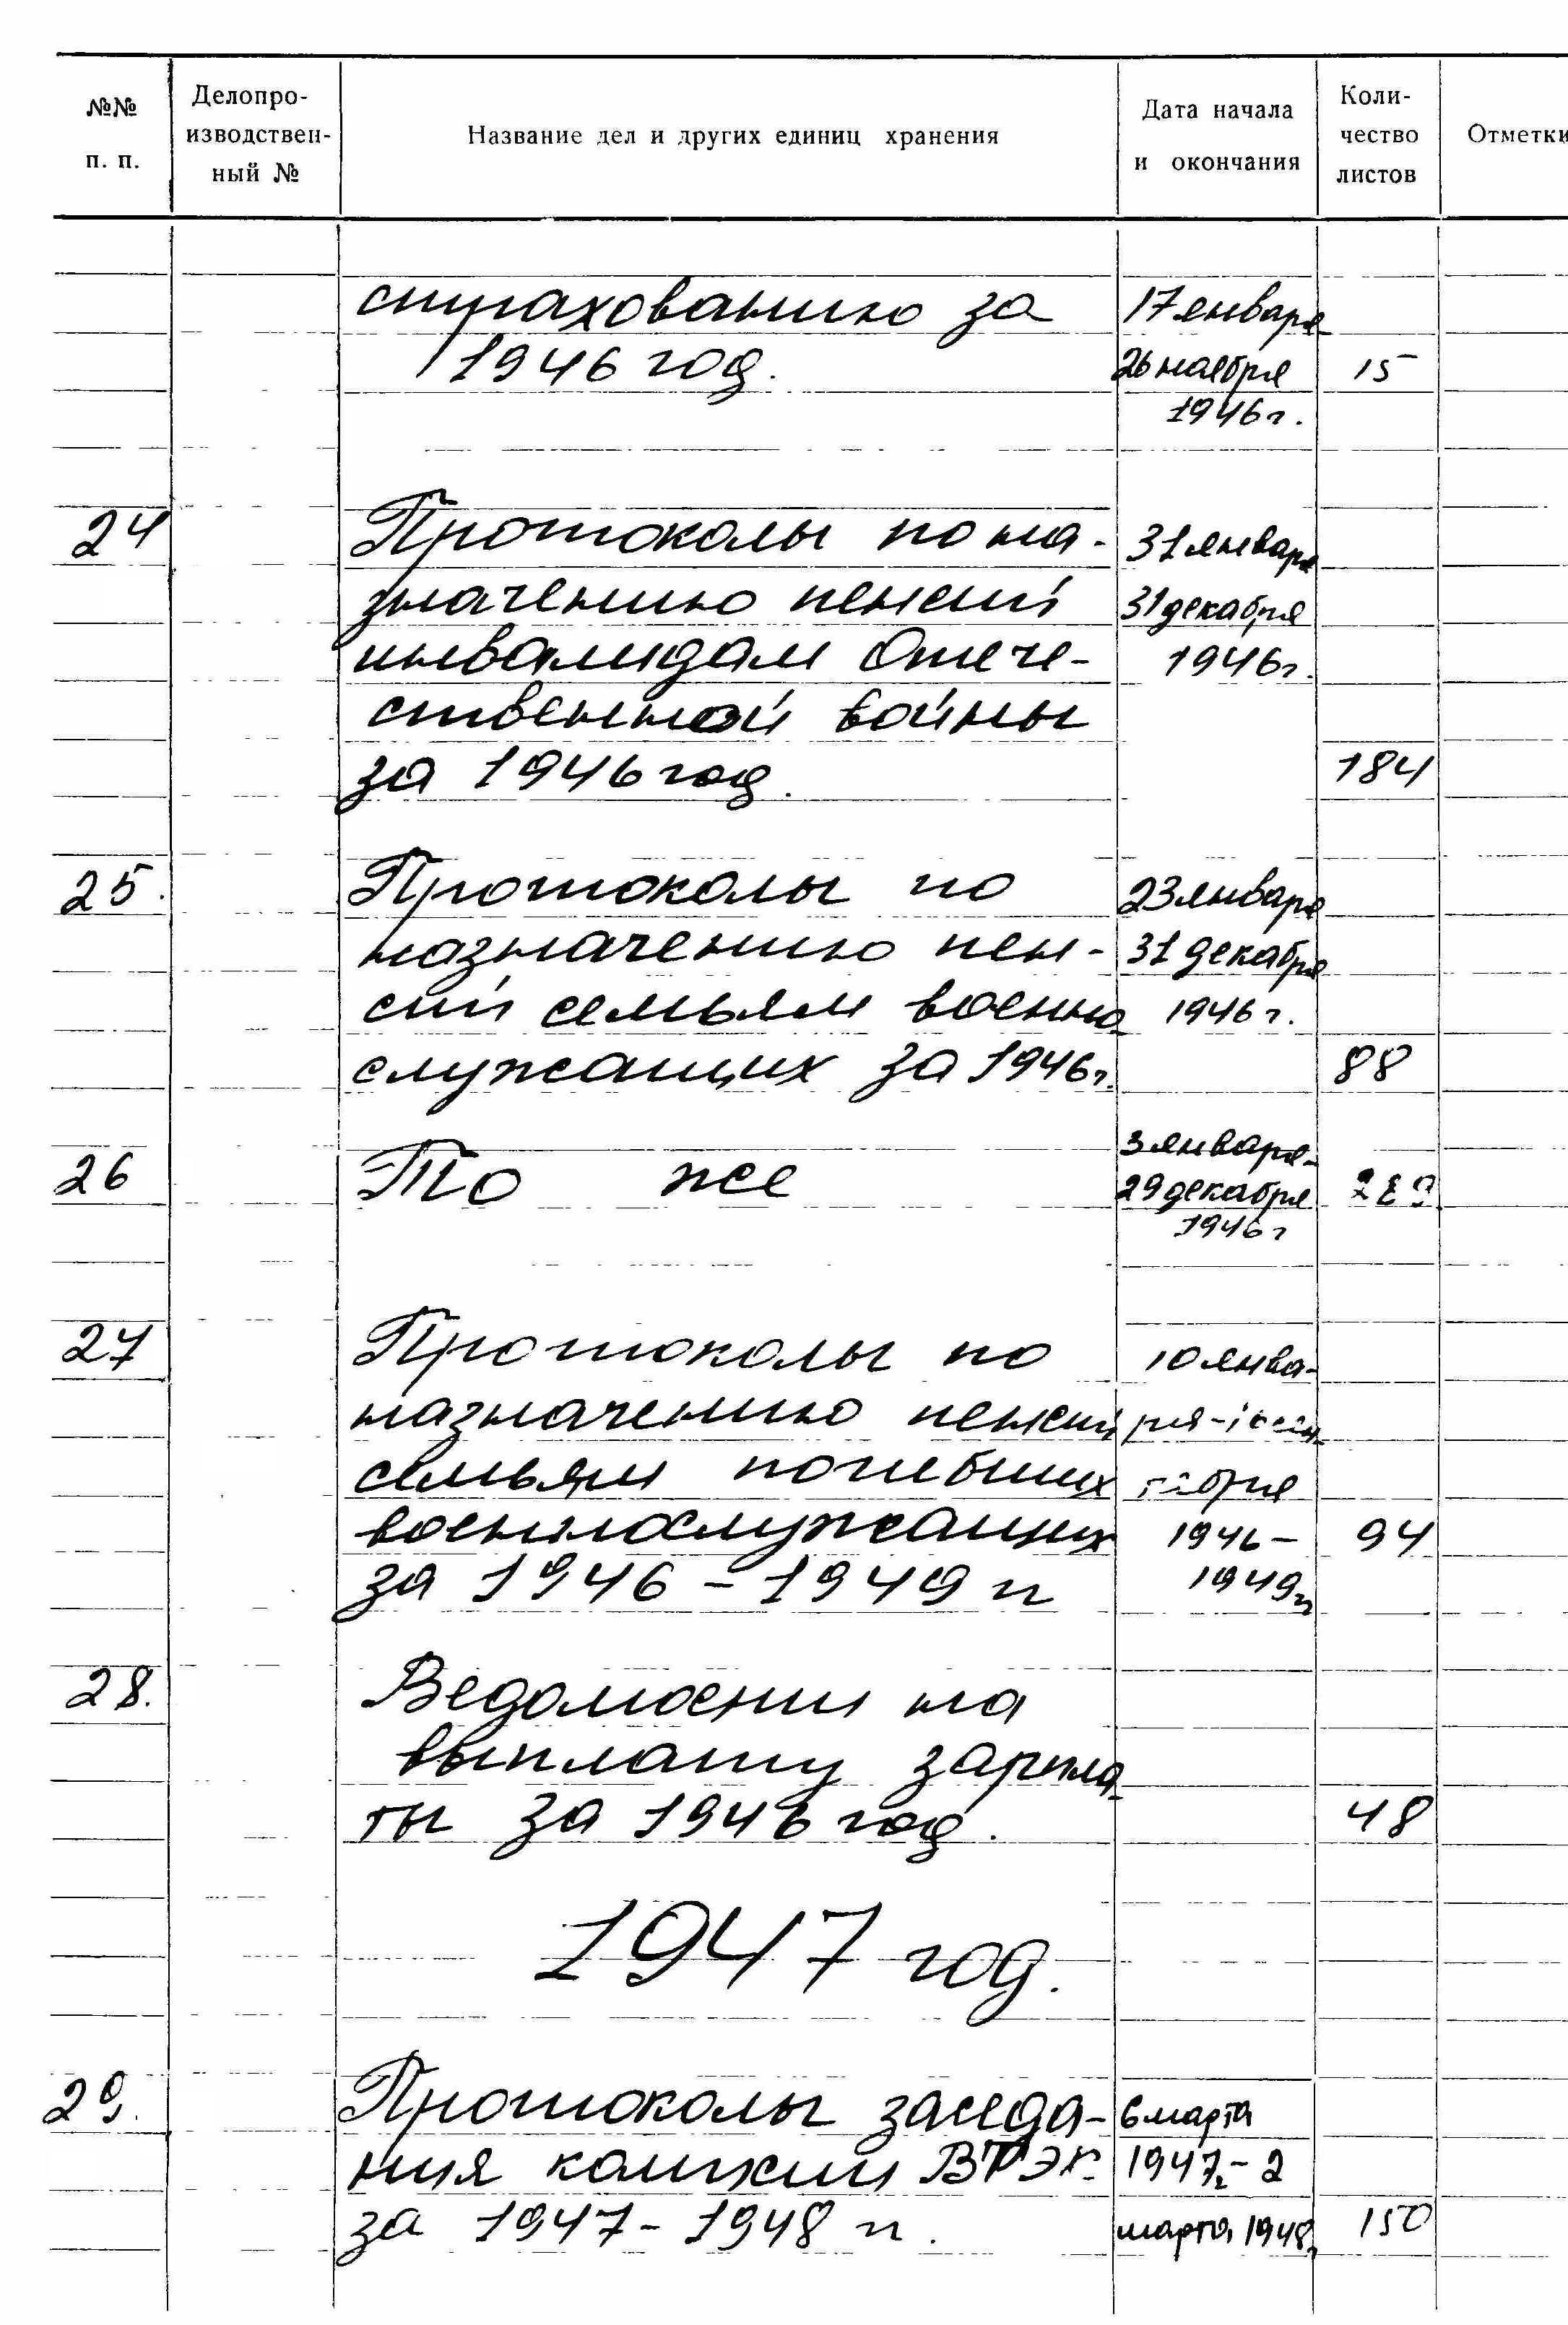 №№ п. п.
Делопро-
изводствен-
ный №
Название дел и других единиц хранения
Дата начала
и окончания
Коли-
чество
листов
Отметки
страхованию за 17 января
1946 год. 26 ноября 15
1946 г.
24 Протоколы по на- 31 января
значению пенсий 31 декабря
инвалидам Отече- 1946 г.
ственной войны
за 1946 год. 184
25. Протоколы по 23 января
назначению пен- 31 декабря
сий семьям военно 1946 г.
служащих за 1946 г. 88
3 января-
26 То же 29 декабря
1946 г
27 Протоколы по 10 янва-
назначению пенсий ря -
семьям погибших
военнослужащих 1946 - 94
за 1946 - 1949 гг 1949 гг
28. Ведомости на
выплату зарпла-
ты за 1946 год. 48
1947 год.
29. Протоколы заседа- 6 марта
ния комиссии ВТЭК 1947 г. - 2
за 1947 - 1948 гг. марта 1948 г. 150